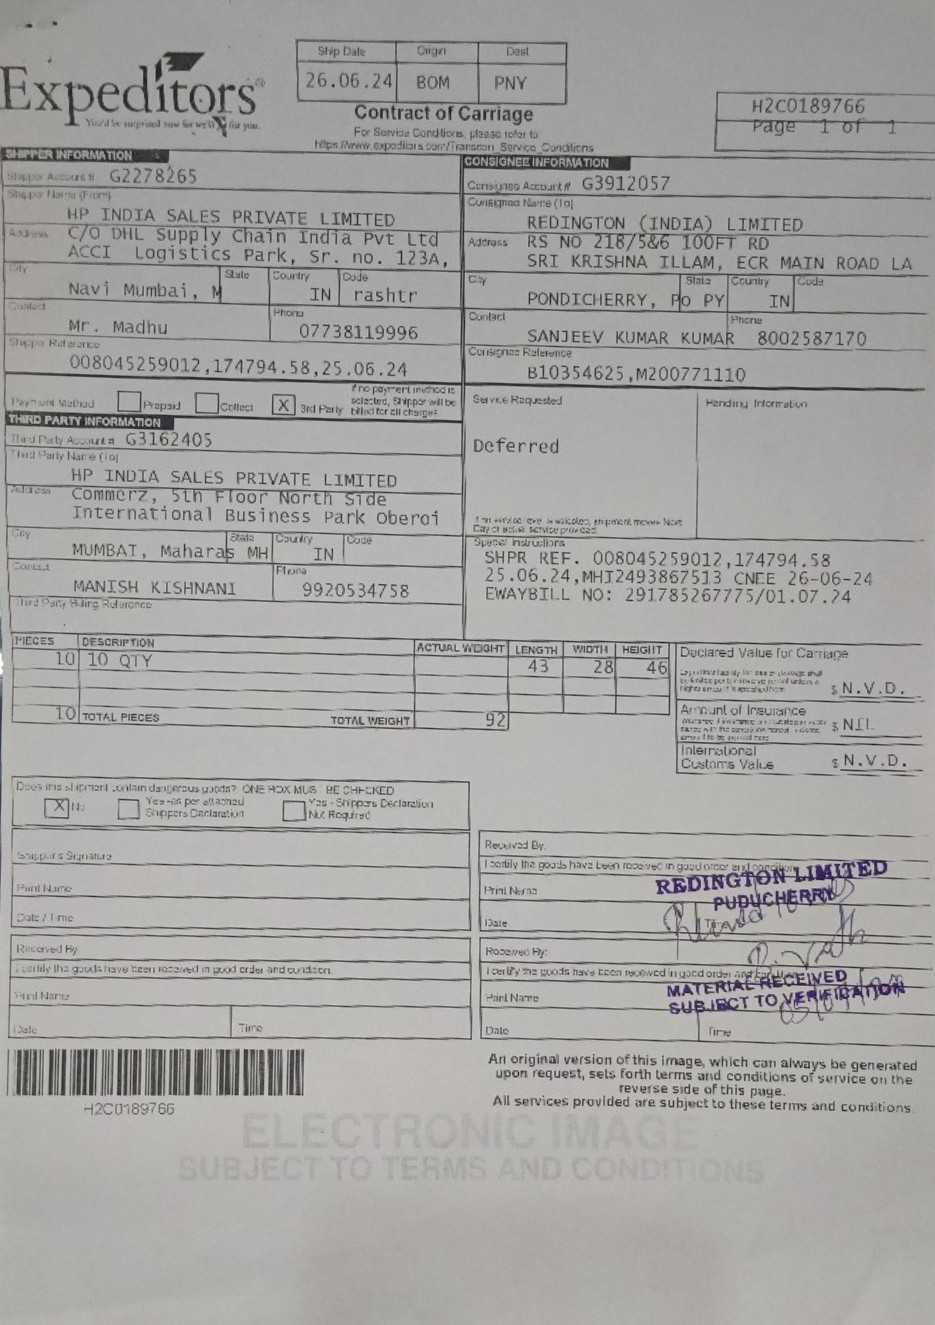 Ship Date Origin Dest
26.06.24 BOM PNY
Expeditors®
You'd be surprised how far we'll go for you.
Contract of Carriage
For Service Conditions, please refer to
https://www.expeditors.com/Transcon_Service_Conditions
H2C0189766
Page 1 of 1
SHIPPER INFORMATION
Shipper Account # G2278265
Shipper Name (From)
HP INDIA SALES PRIVATE LIMITED
Address C/O DHL Supply Chain India Pvt Ltd
ACCI Logistics Park, Sr. no. 123A,
City State Country Code
Navi Mumbai, M IN rashtr
Contact Phone
Mr. Madhu 07738119996
Shipper Reference
008045259012,174794.58,25.06.24
CONSIGNEE INFORMATION
Consignee Account# G3912057
Consignee Name (To)
REDINGTON (INDIA) LIMITED
Address RS NO 218/5&6 100FT RD
SRI KRISHNA ILLAM, ECR MAIN ROAD LA
City State Country Code
PONDICHERRY, Po PY IN
Contact Phone
SANJEEV KUMAR KUMAR 8002587170
Consignee Reference
B10354625,M200771110
Payment Method Prepaid Collect X 3rd Party
If no payment method is
selected, Shipper will be
billed for all charges
THIRD PARTY INFORMATION
Third Party Account # G3162405
Third Party Name (To)
HP INDIA SALES PRIVATE LIMITED
Address Commerz, 5th Floor North Side
International Business Park Oberoi
City State Country Code
MUMBAI, Maharas MH IN
Contact Phone
MANISH KISHNANI 9920534758
Third Party Billing Reference
Service Requested Handling Information
Deferred
If no service level is selected, shipment moves Next
Day or actual service provided
Special Instructions
SHPR REF. 008045259012,174794.58
25.06.24,MHI2493867513 CNEE 26-06-24
EWAYBILL NO: 291785267775/01.07.24
PIECES DESCRIPTION ACTUAL WEIGHT LENGTH WIDTH HEIGHT
10 10 QTY 43 28 46
10 TOTAL PIECES TOTAL WEIGHT 92
Declared Value for Carriage
$ N.V.D.
Amount of Insurance
$ NIL
International
Customs Value $ N.V.D.
Does this shipment contain dangerous goods? ONE BOX MUST BE CHECKED
X No
Yes - as per attached
Shippers Declaration
Yes - Shippers Declaration
Not Required
Shipper's Signature
Print Name
Date / Time
Received By
I certify the goods have been received in good order and condition.
Print Name
Date Time
Received By:
I certify the goods have been received in good order and condition
Print Name
Date Time
REDINGTON LIMITED
PUDUCHERRY
Received By:
I certify the goods have been received in good order and
Print Name
Date Time
MATERIAL RECEIVED
SUBJECT TO VERIFICATION
H2C0189766
An original version of this image, which can always be generated
upon request, sets forth terms and conditions of service on the
reverse side of this page.
All services provided are subject to these terms and conditions.
ELECTRONIC IMAGE
SUBJECT TO TERMS AND CONDITIONS